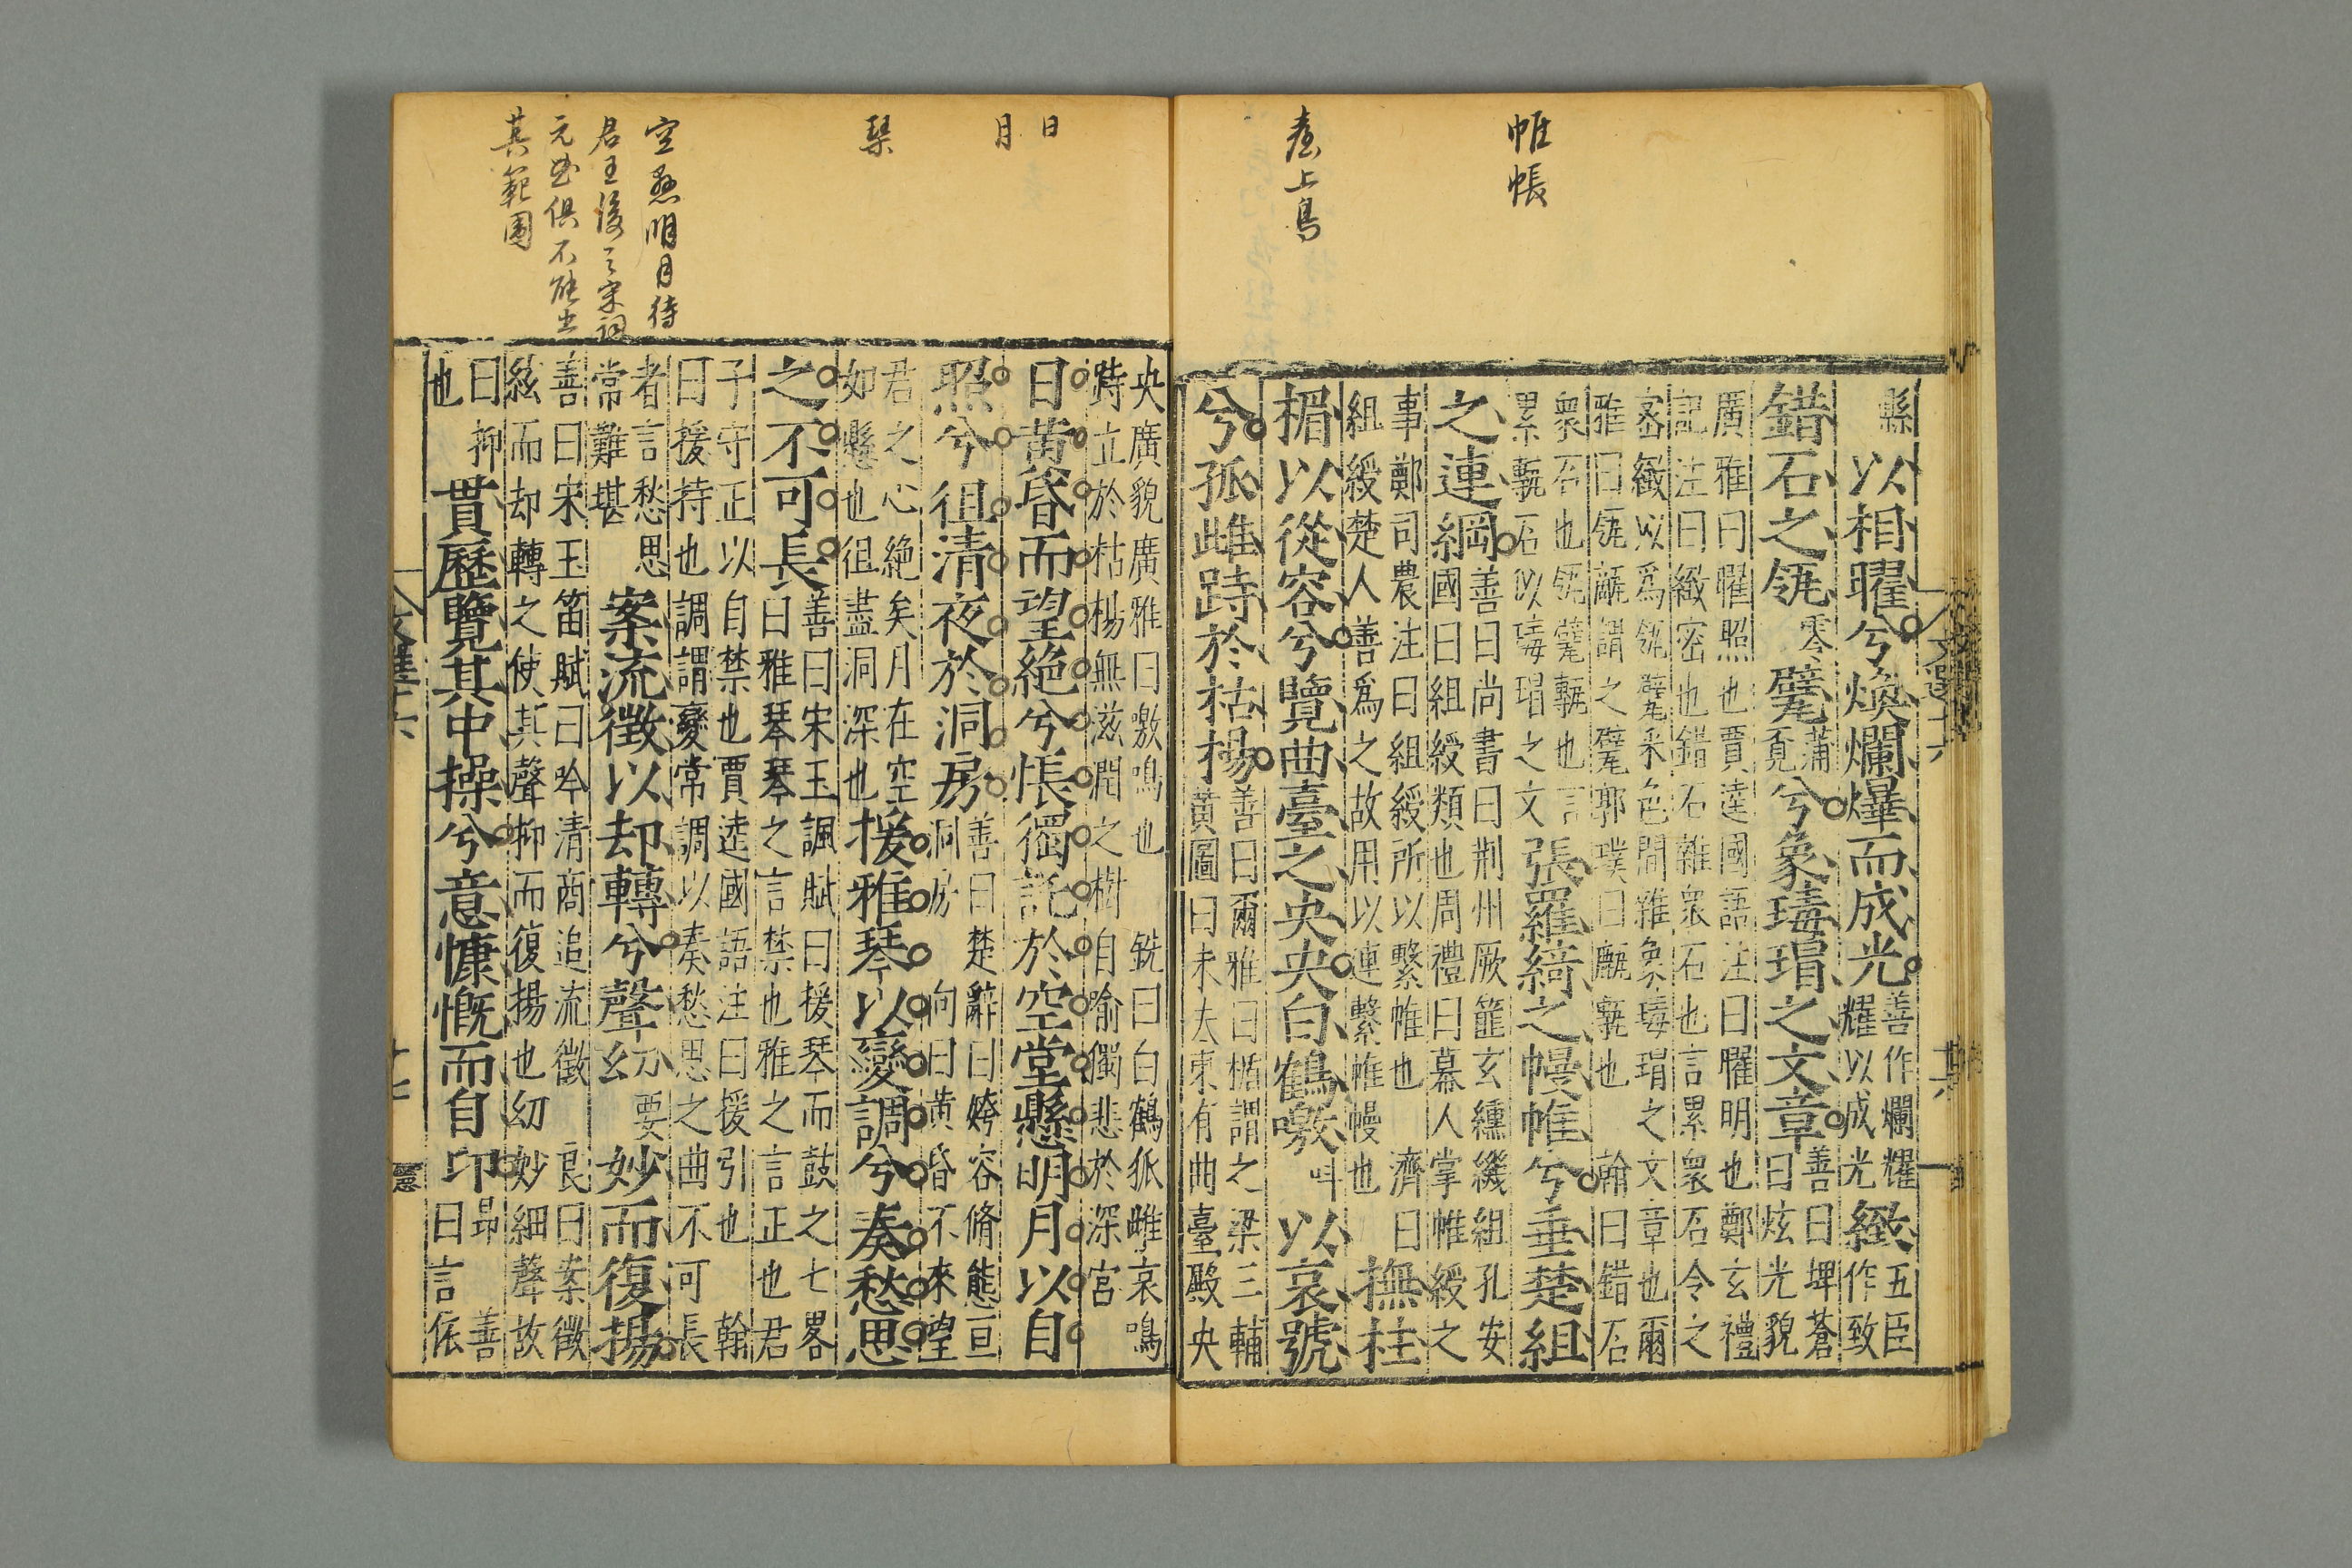 帷帳
臺上鳥
縣以相曜兮煥爛爗而成光善作爛耀
耀以成光緻五臣作致
錯石之瓴零甓蒲覓兮象瑇瑁之文章善曰埤蒼
曰炫光貌
廣雅曰曜照也賈逵國語注曰曜明也鄭玄禮
記注曰緻密也錯石雜衆石也言累衆石令之
密緻以爲瓴甓采色間雜象瑇瑁之文章也爾
雅曰瓴甋謂之甓郭璞曰甋甎也翰曰錯石
衆石也瓴甓甎也言
累甎石似瑇瑁之文張羅綺之幔帷兮垂楚組
之連綱善曰尚書曰荆州厥篚玄纁璣組孔安
國曰組綬類也周禮曰幕人掌帷綬之
事鄭司農注曰組綬所以繫帷也濟曰
組綬楚人善爲之故用以連繫帷幔也撫柱
楣以從容兮覽曲臺之央央白鶴噭叫以哀號
兮孤雌跱於枯楊善曰爾雅曰楣謂之梁三輔
黄圖曰未央東有曲臺殿央
日
月
琴
空懸明月待
君王後之宋詞
元曲俱不能出
其範圍
央廣貌廣雅曰噭鳴也銑曰白鶴孤雌哀鳴
跱立於枯楊無滋潤之樹自喻獨悲於深宮
日黄昏而望絶兮悵獨託於空堂懸明月以自
照兮徂清夜於洞房善曰楚辭曰姱容脩態亘
洞房向曰黄昏不來望
君之心絶矣月在空
如懸也徂盡洞深也援雅琴以變調兮奏愁思
之不可長善曰宋玉諷賦曰援琴而鼓之七畧
曰雅琴琴之言禁也雅之言正也君
子守正以自禁也賈逵國語注曰援引也翰
曰援持也調謂變常調以奏愁思之曲不可長
者言愁思
常難堪案流徵以却轉兮聲幼要妙而復揚
善曰宋玉笛賦曰吟清商追流徵良曰案徵
絃而却轉之使其聲抑而復揚也幼妙細聲故
曰抑
也貫歷覽其中操兮意慷慨而自卬昻善
曰言依